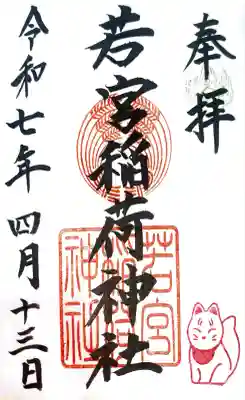 奉拝
若宮稲荷神社
若宮
稲荷
神社
令和七年 四月 十三日